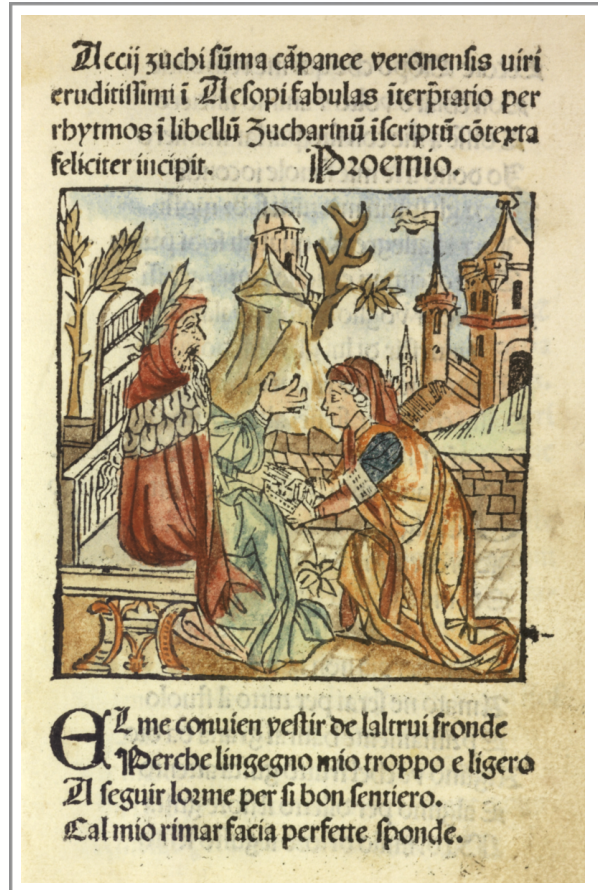 Accij zuchi sūma cāpanee veronensis uiri
eruditissimi ī Aesopi fabulas īterp̄tatio per
rhytmos ī libellū Zucharinū īscriptū cōtexta
feliciter incipit. Proemio.
EL me convien vestir de laltrui fronde
Perche lingegno mio troppo e ligero
A seguir lorme per si bon sentiero.
Cal mio rimar facia perfette sponde.